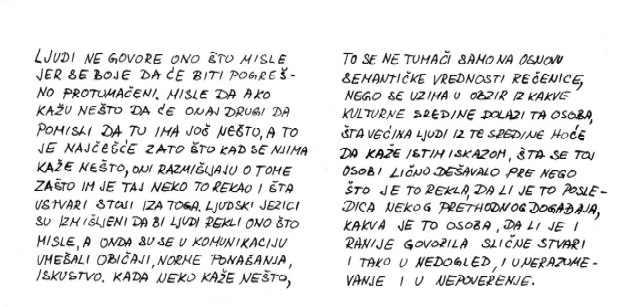 LJUDI NE GOVORE ONO ŠTO MISLE
JER SE BOJE DA ĆE BITI POGREŠ-
NO PROTUMAČENI. MISLE DA AKO
KAŽU NEŠTO DA ĆE ONAJ DRUGI DA
POMISLI DA TU IMA JOŠ NEŠTO, A TO
JE NAJČEŠĆE ZATO ŠTO KAD SE NJIMA
KAŽE NEŠTO, ONI RAZMIŠLJAJU O TOME
ZAŠTO IM JE TAJ NEKO TO REKAO I ŠTA
USTVARI STOJI IZA TOGA. LJUDSKI JEZICI
SU IZMIŠLJENI DA BI LJUDI REKLI ONO ŠTO
MISLE, A ONDA SU SE U KOMUNIKACIJU
UMEŠALI OBIČAJI, NORME PONAŠANJA,
ISKUSTVO. KADA NEKO KAŽE NEŠTO,
TO SE NE TUMAČI SAMO NA OSNOVU
SEMANTIČKE VREDNOSTI REČENICE,
NEGO SE UZIMA U OBZIR IZ KAKVE
KULTURNE SREDINE DOLAZI TA OSOBA,
ŠTA VEĆINA LJUDI IZ TE SREDINE HOĆE
DA KAŽE ISTIM ISKAZOM, ŠTA SE TOJ
OSOBI LIČNO DEŠAVALO PRE NEGO
ŠTO JE TO REKLA, DA LI JE TO POSLE-
DICA NEKOG PRETHODNOG DOGAĐAJA,
KAKVA JE TO OSOBA, DA LI JE I
RANIJE GOVORILA SLIČNE STVARI
I TAKO U NEDOGLED, I U NERAZUME-
VANJE I U NEPOVERENJE.